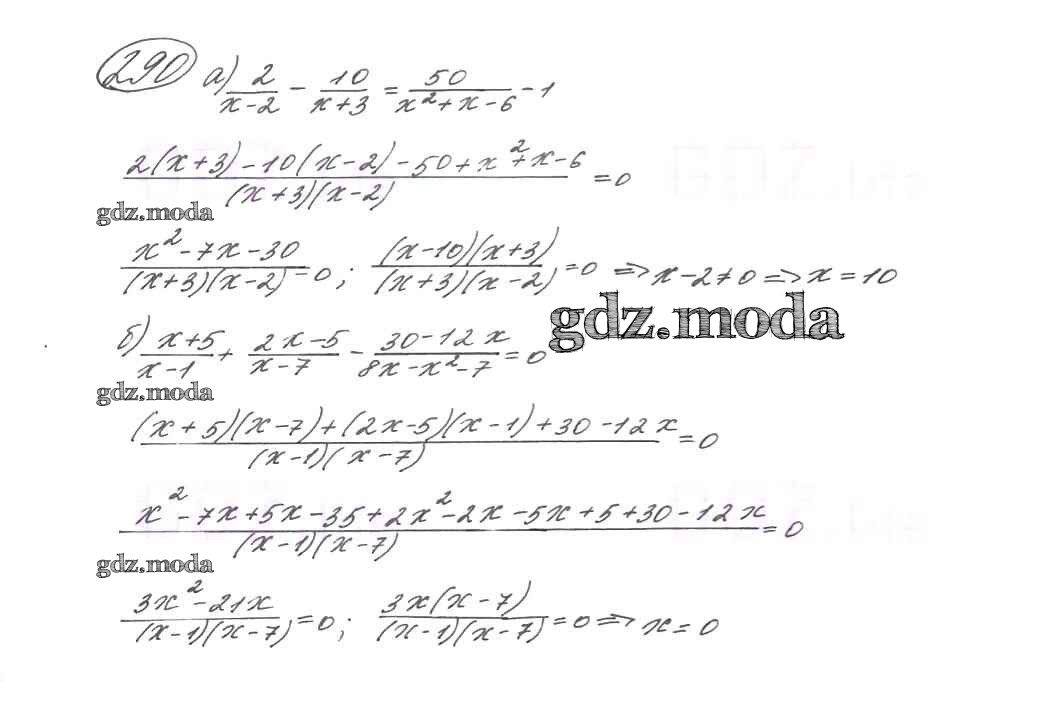 290 а) 2/(x-2) - 10/(x+3) = 50/(x²+x-6) - 1
(2(x+3)-10(x-2)-50+x²+x-6)/((x+3)(x-2)) = 0
gdz.moda
(x²-7x-30)/((x+3)(x-2)) = 0; ((x-10)(x+3))/((x+3)(x-2)) = 0 => x-2≠0 => x=10
gdz.moda
б) (x+5)/(x-1) + (2x-5)/(x-7) - (30-12x)/(8x-x²-7) = 0
gdz.moda
((x+5)(x-7)+(2x-5)(x-1)+30-12x)/((x-1)(x-7)) = 0
(x²-7x+5x-35+2x²-2x-5x+5+30-12x)/((x-1)(x-7)) = 0
gdz.moda
(3x²-21x)/((x-1)(x-7)) = 0; (3x(x-7))/((x-1)(x-7)) = 0 => x=0